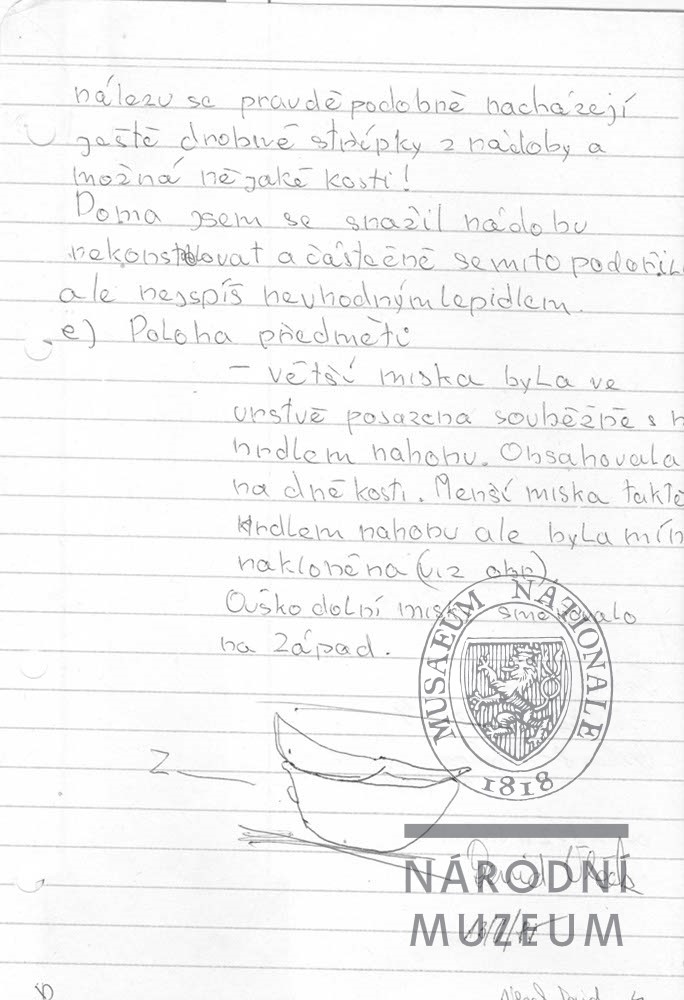 nálezu se pravděpodobně nacházejí
ještě drobné střípky z nádoby a
možná nějaké kosti!
Doma jsem se snažil nádobu
a částečně se mi to podařil
ale nejspíš nevhodným lepidlem.
e) Poloha předmětů
- větší miska byla ve
vrstvě posazena souběžně s
hrdlem nahoru. Obsahovala
na dně kosti. Menší miska takté
Hrdlem nahoru ale byla mín
nakloněna (viz obr).
Ouško dolní misk směřovalo
na Západ.
Z
MUSAEUM NATIONALE
1818
David
NÁRODNÍ
MUZEUM